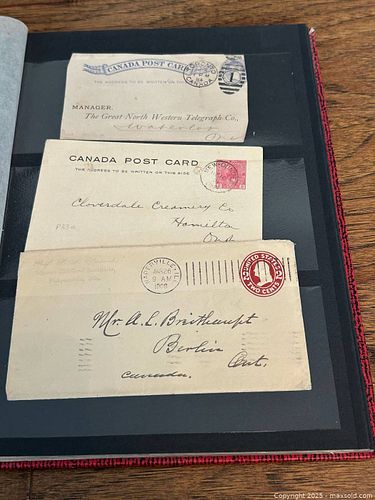 CANADA POST CARD
THE ADDRESS TO BE WRITTEN ON THIS
TORONTO
CANADA
1
MANAGER,
The Great North Western Telegraph Co.,
Waterloo
CANADA POST CARD
THE ADDRESS TO BE WRITTEN ON THIS SIDE
Cloverdale Creamery Co
Hamilton
Ont
NAPERVILLE, ILL.
9 AM
1909
UNITED STATES
TWO CENTS
Mr. A. L. Breithaupt
Berlin
Ont.
Canada.
Copyright 2025 - maxsold.com